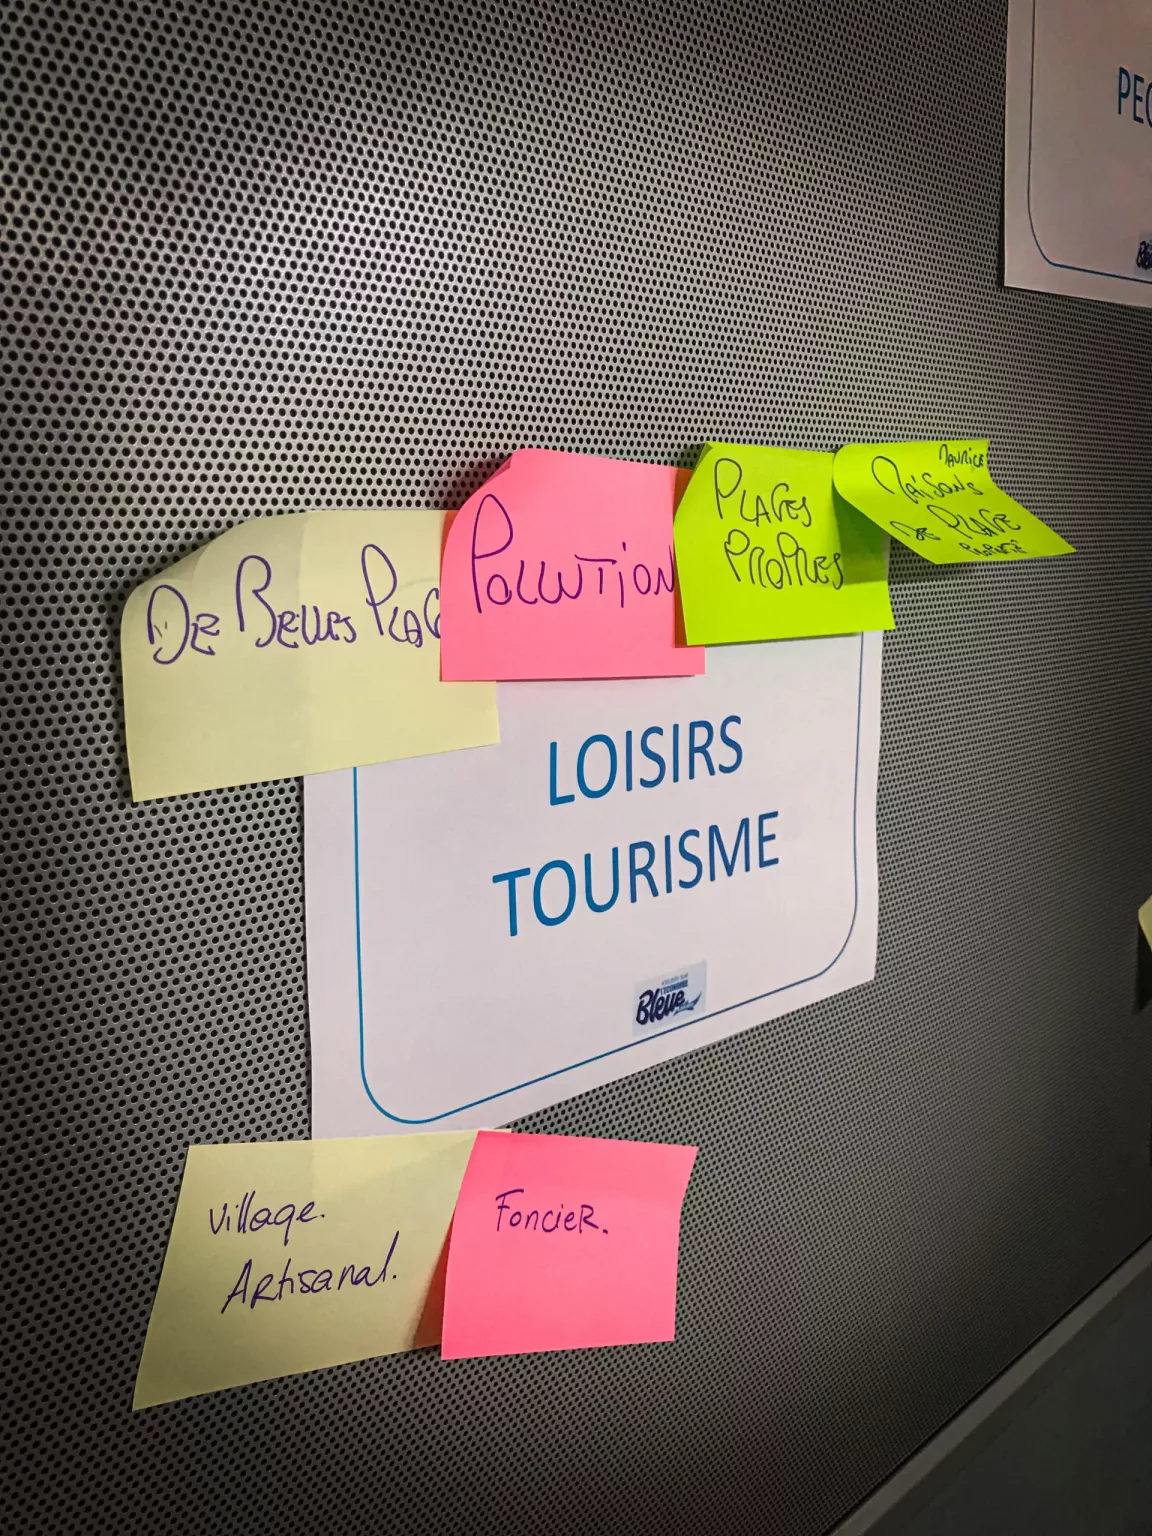 PEC
DE BELLES PLAG
POLLUTION
PLAGES
PROPRES
MAURICE
MAISONS
DE PLAGE
LOISIRS
TOURISME
L'ÉCONOMIE
Bleue
Village.
Artisanal.
FoncieR.